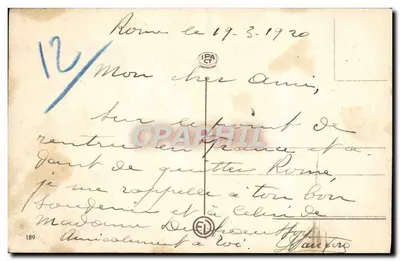 Rome le 19-3-1920
12/
IPA CT
Mon cher Ami,
Sur le point de
rentrer en France et a-
vant de quitter Rome,
je me rappelle à ton bon
souvenir et à celui de
Madame
189 Amicalement à toi.
CPAPHIL